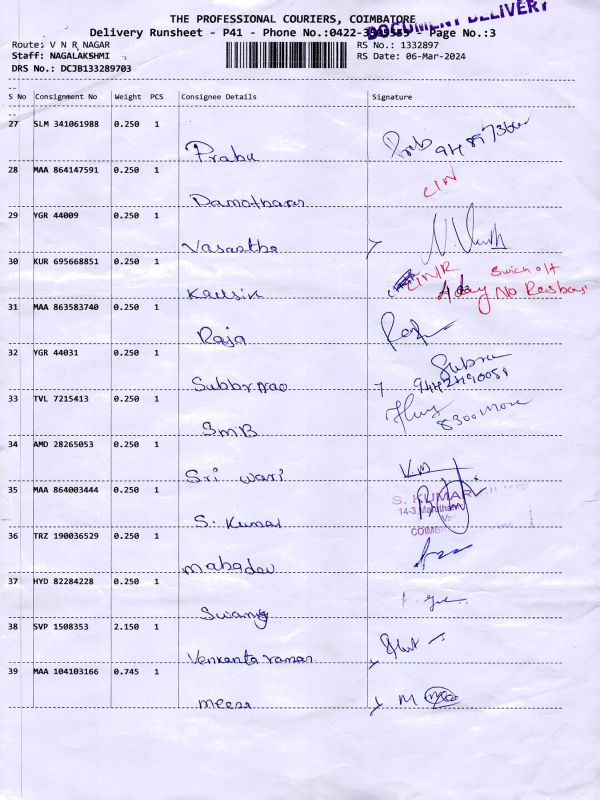 DOCUMENT DELIVERY
THE PROFESSIONAL COURIERS, COIMBATORE
Delivery Runsheet - P41 - Phone No.:0422- Page No.:3
Route: V N R NAGAR RS No.: 1332897
Staff: NAGALAKSHMI RS Date: 06-Mar-2024
DRS No.: DCJB133289703
S No Consignment No Weight PCS Consignee Details Signature
27 SLM 341061988 0.250 1
Prabu
28 MAA 864147591 0.250 1
Damotharan
29 YGR 44009 0.250 1
Vasantha
30 KUR 695668851 0.250 1
Kausik
Swich off
No
31 MAA 863583740 0.250 1
Raja
32 YGR 44031 0.250 1
Subbu rao
33 TVL 7215413 0.250 1
SMB
34 AMD 28265053 0.250 1
Sri wari
35 MAA 864003444 0.250 1
S. KUMAR
S. Kumar
36 TRZ 190036529 0.250 1
mahadev
37 HYD 82284228 0.250 1
Swamy
38 SVP 1508353 2.150 1
Venkanta raman
39 MAA 104103166 0.745 1
meera
M